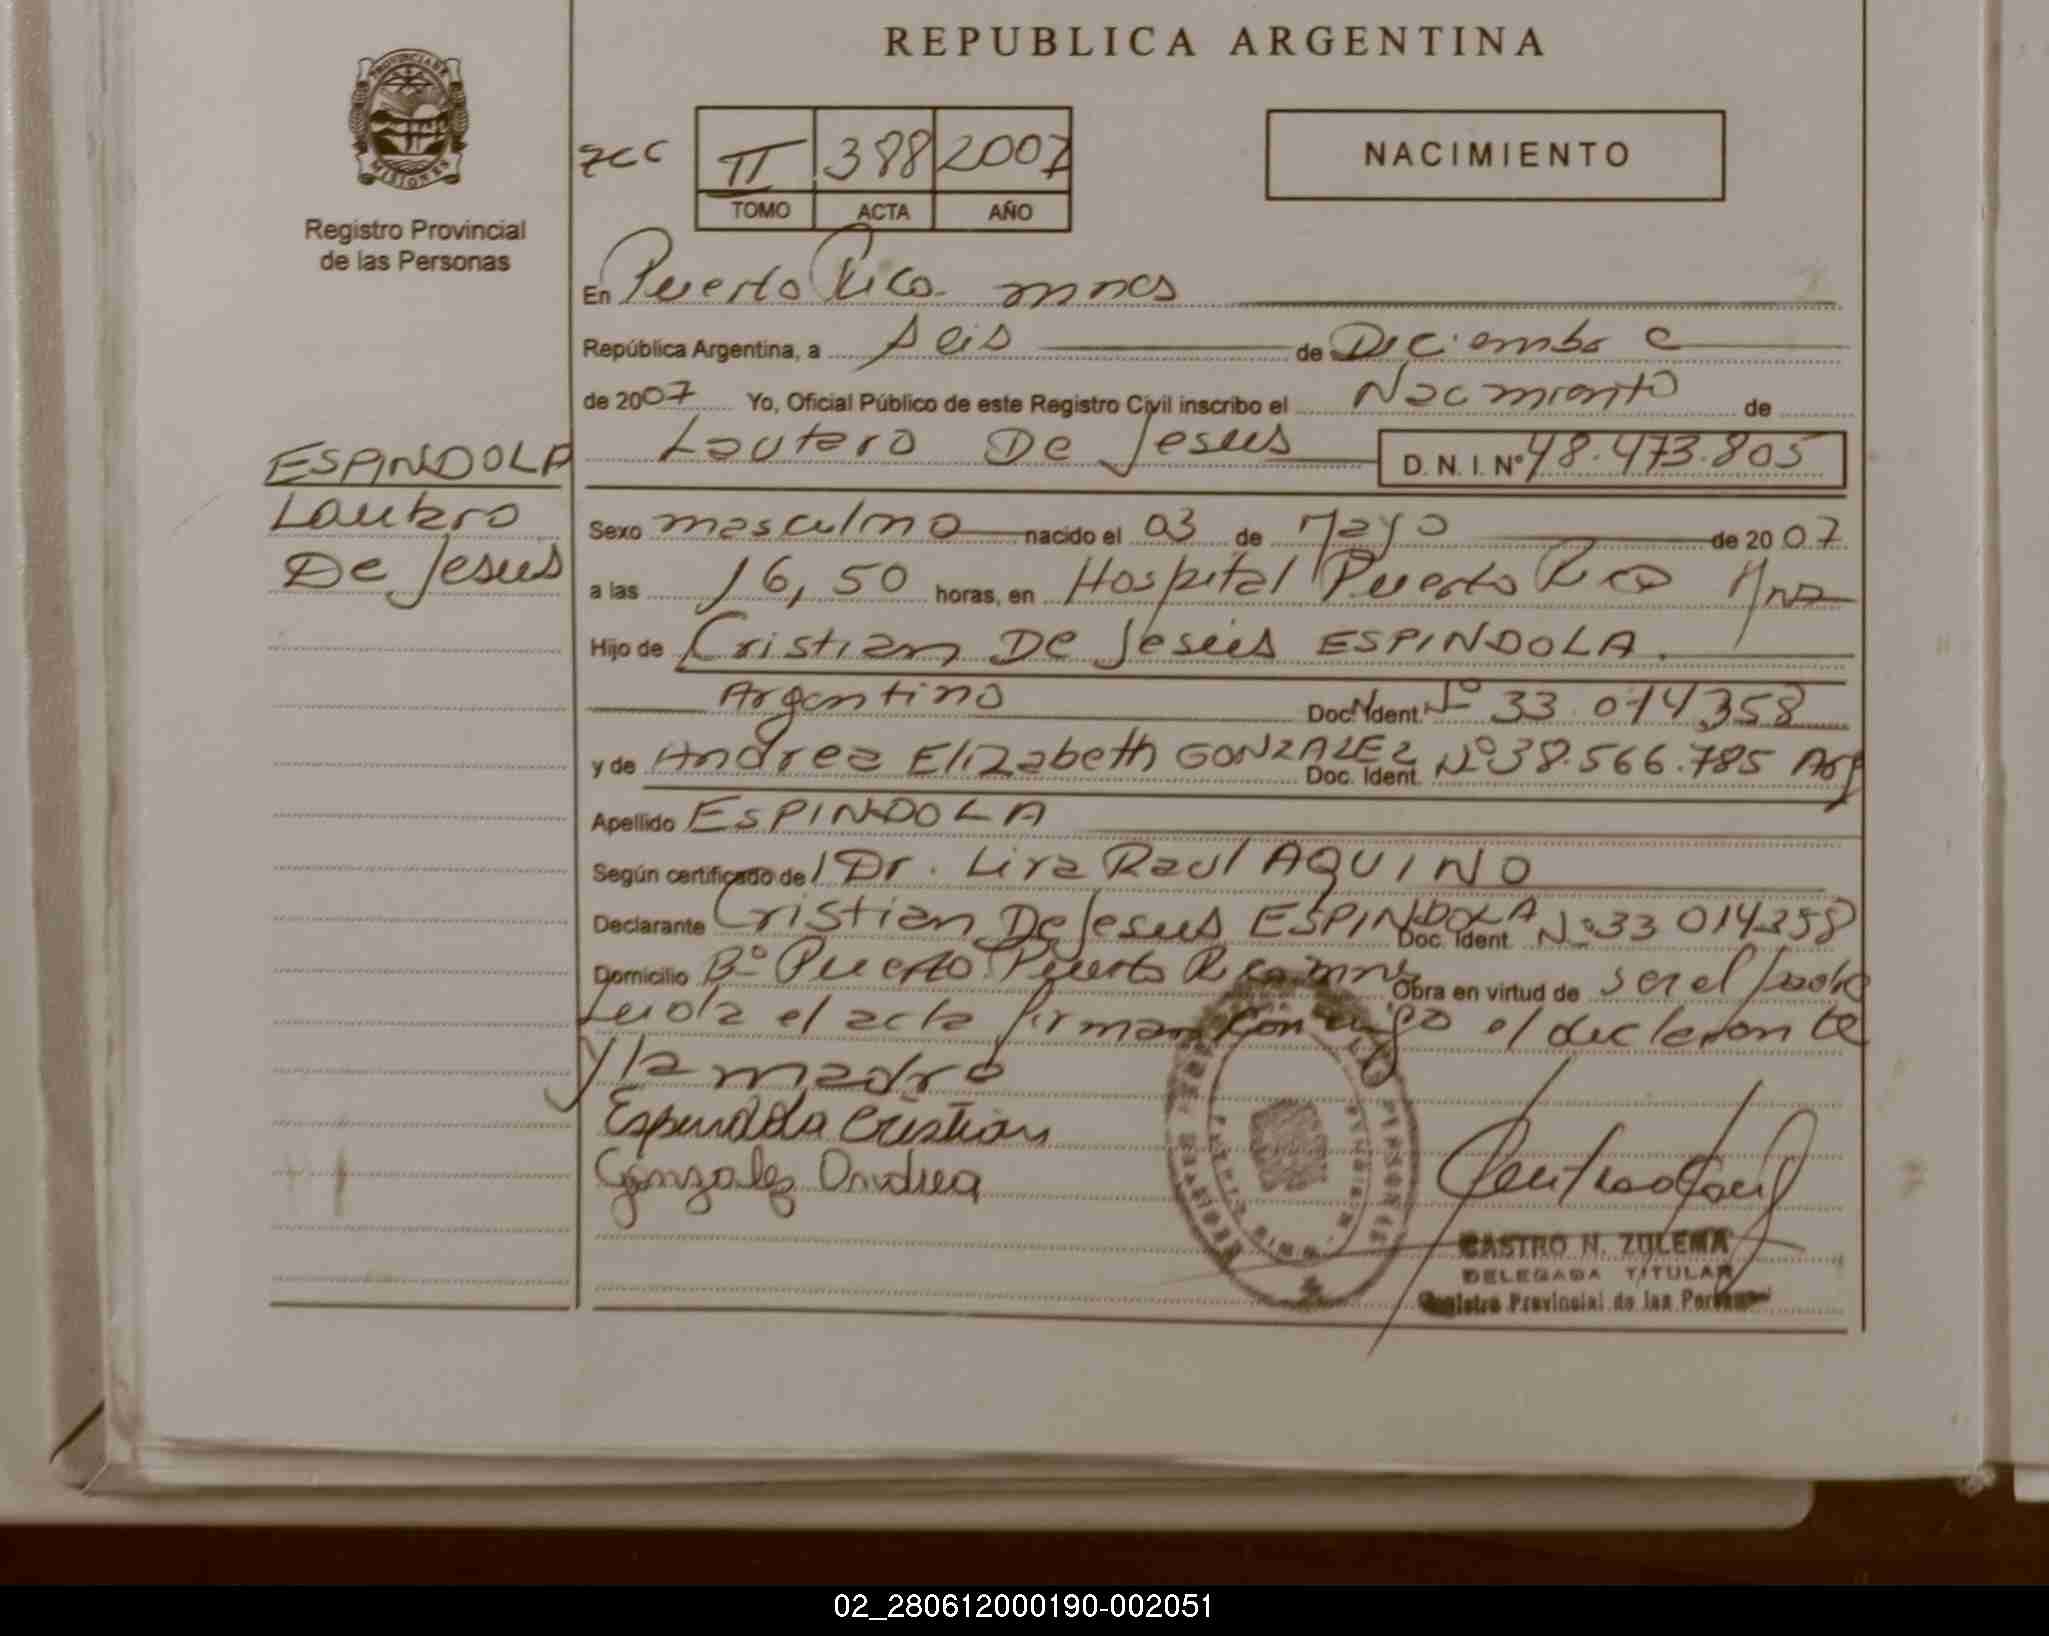 REPUBLICA ARGENTINA
PROVINCIA DE
MISIONES
Registro Provincial
de las Personas
zcc
II 388 2007
TOMO ACTA AÑO
NACIMIENTO
En Puerto Rico mnes
República Argentina, a seis de Diciembre
de 2007 Yo, Oficial Público de este Registro Civil inscribo el Nacimiento de
Lautaro De Jesus D. N. I. Nº 48.473.805
ESPINDOLA
Lautaro
De Jesus
Sexo masculino nacido el 03 de Mayo de 2007
a las 16,50 horas, en Hospital Puerto Rico Mnes
Hijo de Cristian De Jesús ESPINDOLA.
Argentino Doc. Ident. Nº 33.014.358
y de Andrea Elizabeth GONZALEZ Doc. Ident. Nº 38.566.785 Arg
Apellido ESPINDOLA
Según certificado de Dr. Lira Raul AQUINO
Declarante Cristian De Jesus ESPINDOLA Doc. Ident. Nº 33 014.358
Domicilio Bº Puerto Puerto Rico mnes Obra en virtud de ser el padre
Leida el acta firman conmigo el declarante
y la madre
Espindola Cristian
Gonzalez Andrea
CASTRO N. ZULEMA
DELEGADA TITULAR
Registro Provincial de las Personas
02_280612000190-002051